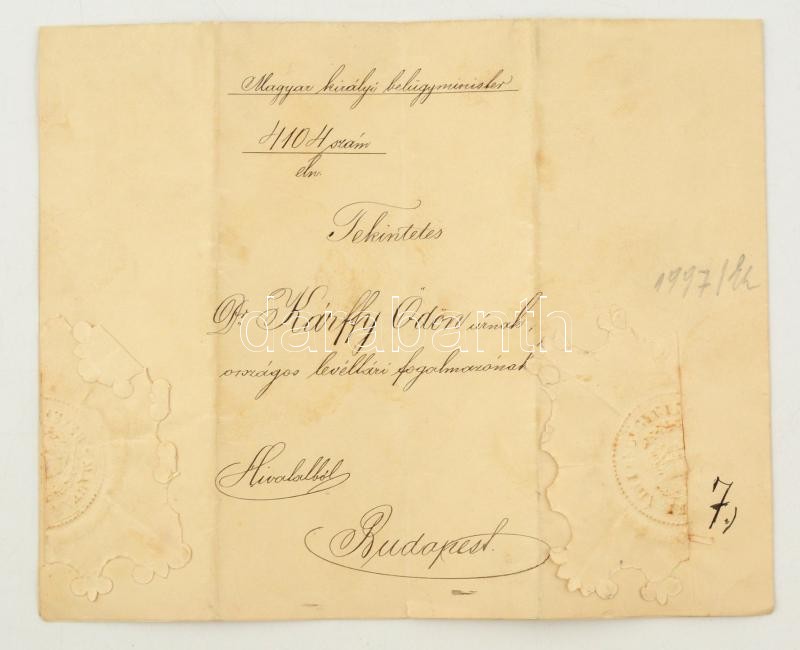 Magyar királyi belügyminister
4104 szám
eln.
Tekintetes
Dr. Kárffy Ödön urnak,
országos levéltári fogalmazónak
Hivatalból
Budapest.
1997/
7.)
darabanth